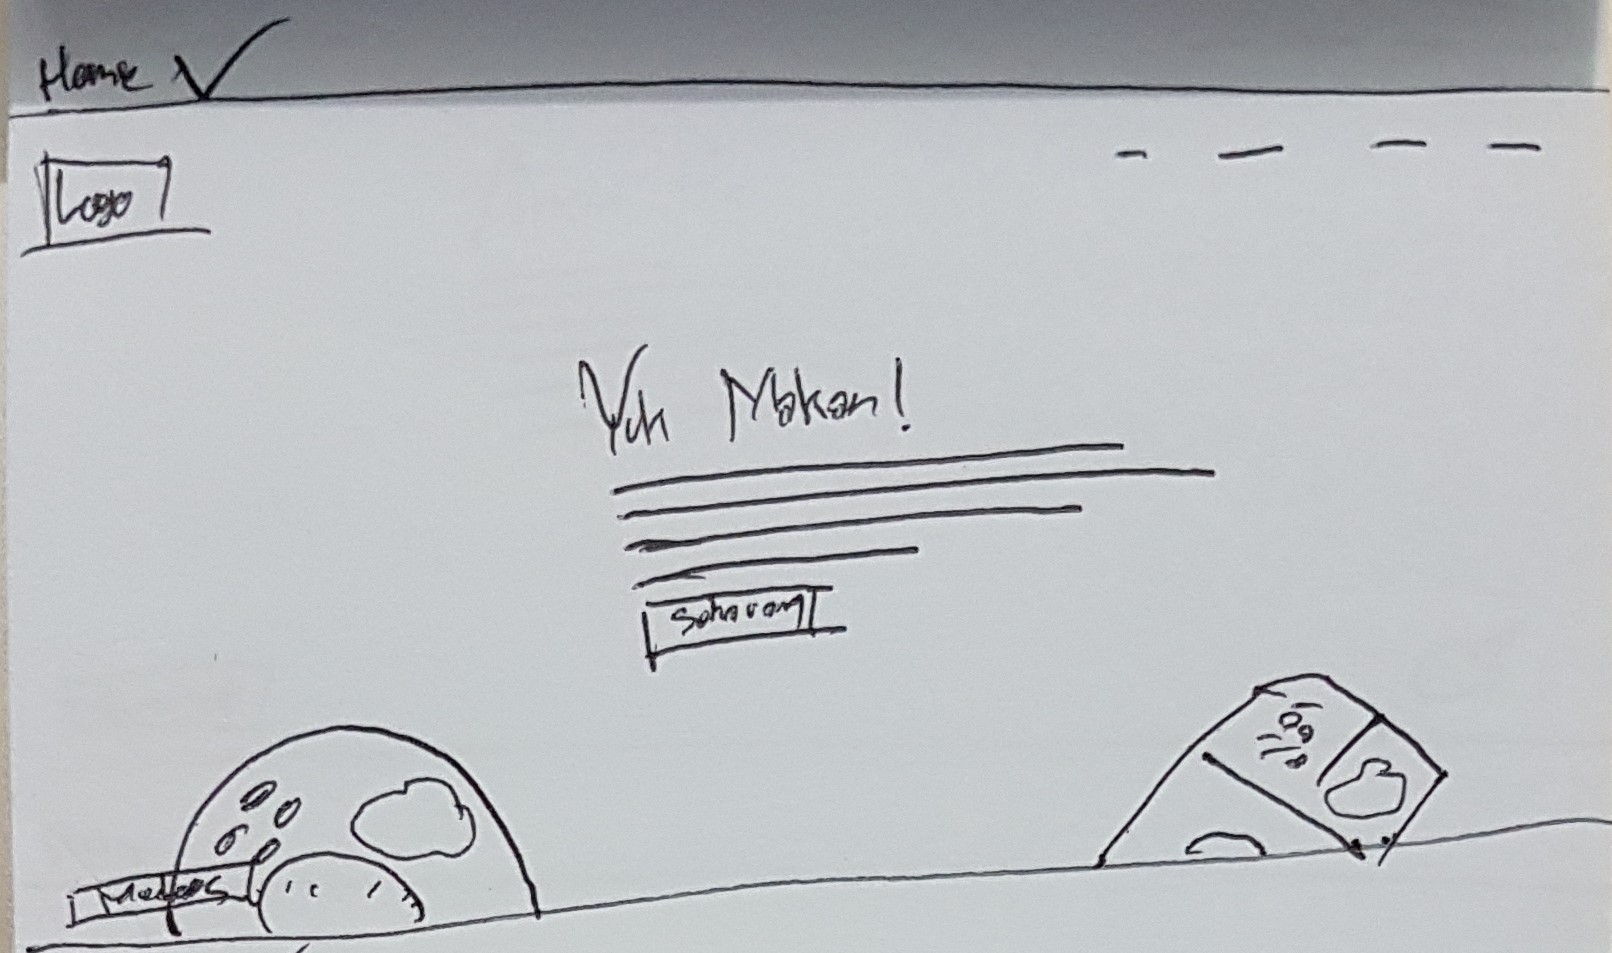 Home
Logo
Yuk Makan!
Sekarang
Medsos